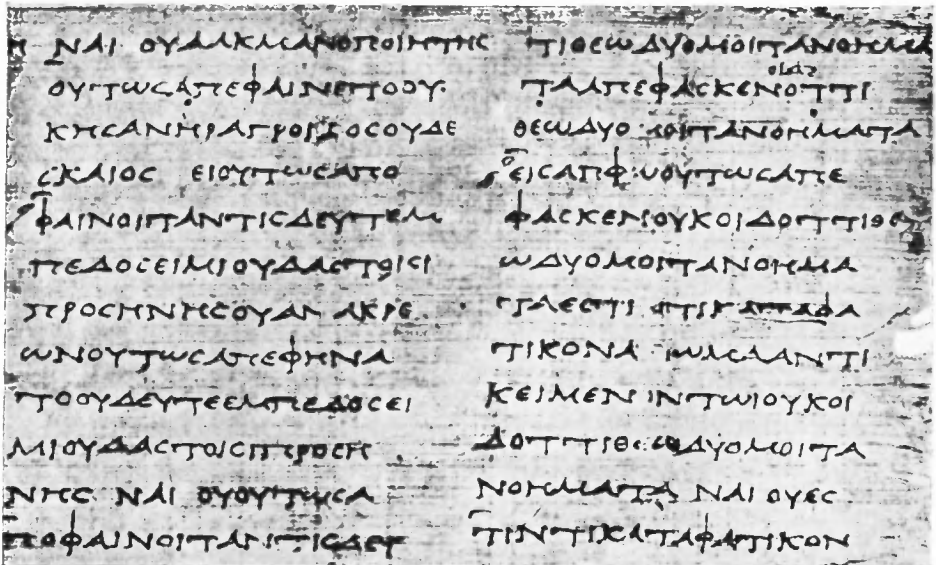 ΝΑΙ ΟΥΑΛΚΜΑΝΟΠΟΙΗΤΗC
ΟΥΤΩCΑΠΕΦΑΙΝΕΤΟΟΥ
ΚΗCΑΝΗΡΑΓΡΟΙΚΟCΟΥΔΕ
CΚΑΙΟC ΕΙΟΥΤΩCΑΠΟ
ΦΑΙΝΟΙΤΑΝΤΙCΔΕΥΤΕΜ
ΠΕΔΟCΕΙΜΙΟΥΔΑCΤΟΙCΙ
ΠΡΟCΗΝΗCΟΥΑΝΑΚΡΕ
ΩΝΟΥΤΩCΑΠΕΦΗΝΑ
ΤΟΟΥΔΕΥΤΕΕΜΠΕΔΟCΕΙ
ΜΙΟΥΔΑCΤΟΙCΠΡΟCΗ
ΝΗC ΝΑΙ ΟΥΟΥΤΩCΑ
ΠΟΦΑΙΝΟΙΤΑΝΤΙCΔΕΥ
ΤΙΘΕΩΔΥΟΜΟΙΤΑΝΟΗΜΑ
ΤΑΑΠΕΦΑCΚΕΝΟΤΤΙ
ΘΕΩΔΥΟΜΟΙΤΑΝΟΗΜΑΤΑ
ΕΙCΑΠΦΩΟΥΤΩCΑΠΕ
ΦΑCΚΕΝΟΥΚΟΙΔΟΤΤΙΘΕ
ΩΔΥΟΜΟΙΤΑΝΟΗΜΑ
ΤΑΕCΤΙ ΤΙΚΑΤΑΦΑ
ΤΙΚΟΝΑΞΙΩΜΑΑΝΤΙ
ΚΕΙΜΕΝΟΝΤΩΙΟΥΚΟΙ
ΔΟΤΤΙΘΕΩΔΥΟΜΟΙΤΑ
ΝΟΗΜΑΤΑ ΝΑΙ ΟΥΕC
ΤΙΝΤΙΚΑΤΑΦΑΤΙΚΟΝ